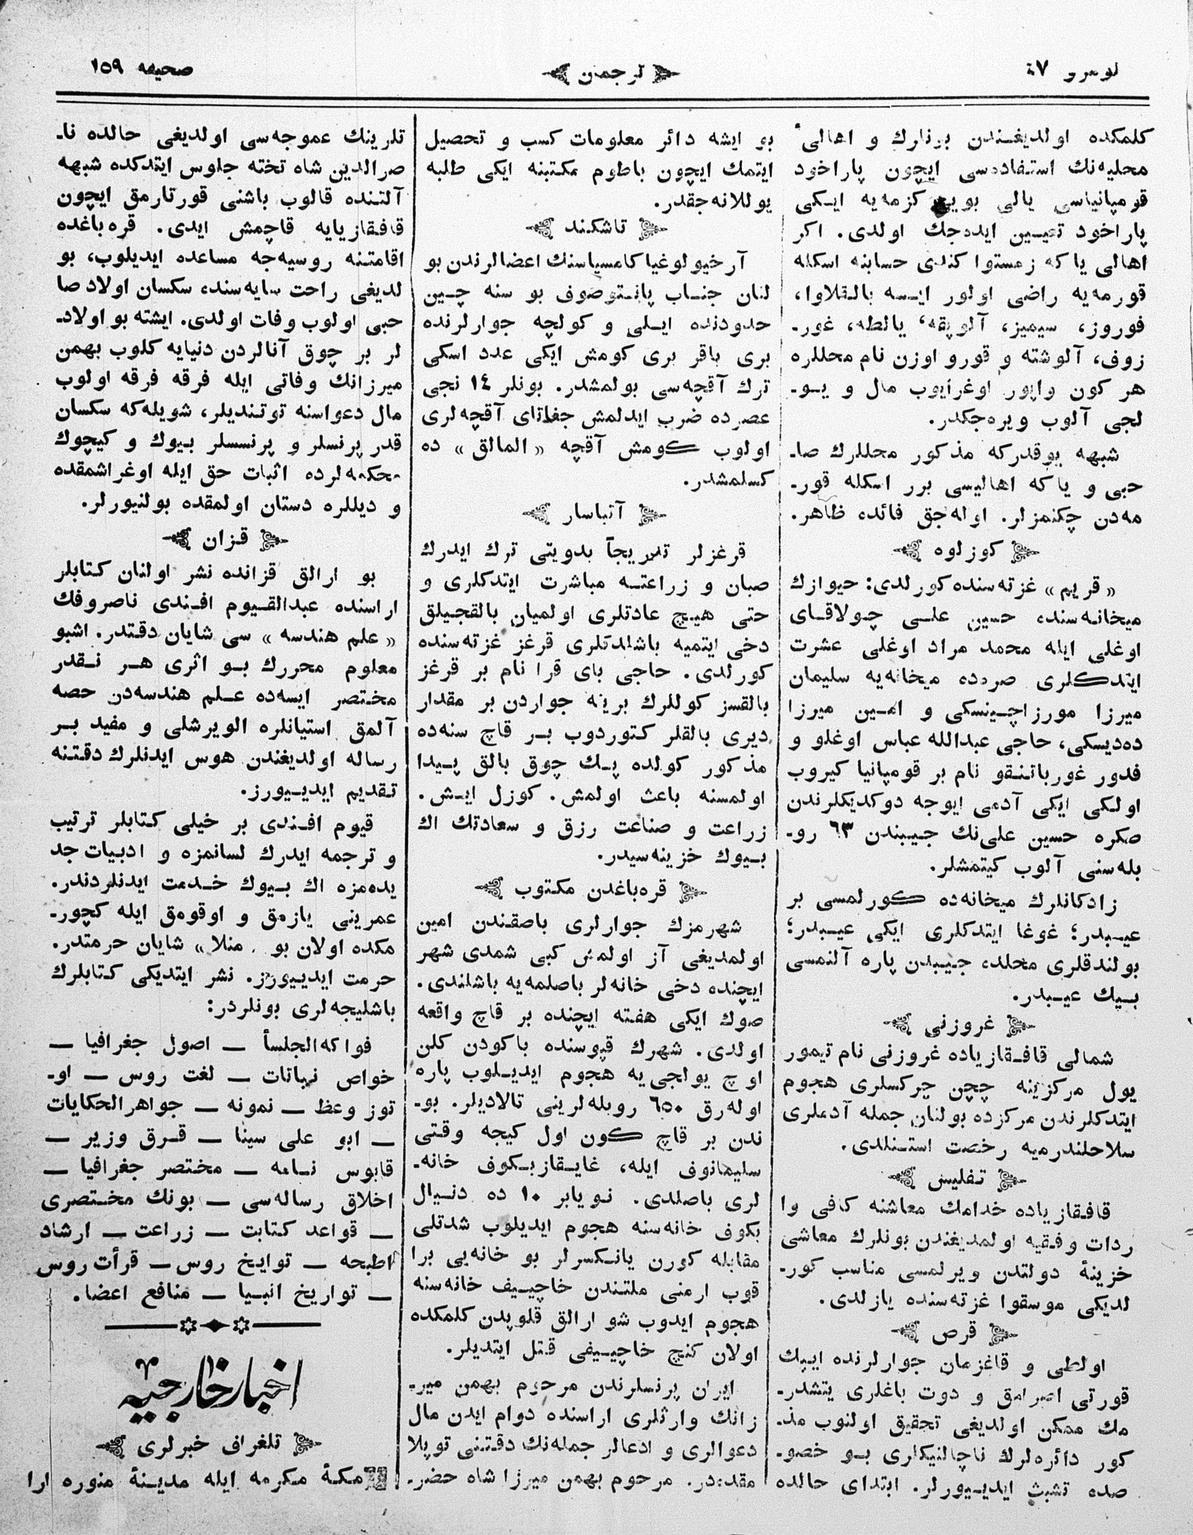 نومرو ٤٧
ترجمان
صحیفه ١٥٩
كلمكده اولدیغندن بونلرك و اهالیٔ
محلیه‌نك استفاده‌سی ایچون پاراخود
قومپانیاسی یالی بویی كزمه‌یه ایكی
پاراخود تعیین ایده‌جك اولدی. اكر
اهالی یاكه زمستوا كندی حسابنه اسكله
قورمه‌یه راضی اولور ایسه بالقلاوا،
فوروز، سیمیز، آلوپقه، یالطه، غور-
زوف، آلوشته و قورو اوزن نام محللره
هر كون واپور اوغرایوب مال و یو-
لجی آلوب ویره‌جكدر.
شبهه یوقدركه مذكور محللرك صا-
حبی و یاكه اهالیسی برر اسكله قور-
مه‌دن چكنمزلر. اوله‌جق فائده ظاهر.
كوزلوه
« قریم » غزته‌سنده كورلدی: حیوازك
میخانه‌سند، حسین علی چولاقای
اوغلی ایله محمد مراد اوغلی عشرت
ایتدكلری صره‌ده میخانه‌یه سلیمان
میرزا مورزاچینسكی و امین میرزا
ده‌دیسكی، حاجی عبدالله عباس اوغلو و
فدور غورباتنقو نام بر قومپانیا كیروب
اولكی ایكی آدمی ایوجه دوكدیكلرندن
صكره حسین علی‌نك جیبندن ٦٣ رو-
بله‌سنی آلوب كیتمشلر.
زادكانلرك میخانه‌ده كورلمسی بر
عیبدر؛ غوغا ایتدكلری ایكی عیبدر؛
بولندقلری محلد، جیبدن پاره آلنمسی
بیك عیبدر.
غروزنی
شمالی قافقازیاده غروزنی نام تیمور
یول مركزینه چچن چركسلری هجوم
ایتدكلرندن مركزده بولنان جمله آدملری
سلاحلندرمیه رخصت استنلدی.
تفلیس
قافقازیاده خدامك معاشنه كافی وا
ردات وقفیه اولمدیغندن بونلرك معاشی
خزینهٔ دولتدن ویرلمسی مناسب كور-
لدیكی موسقوا غزته‌سنده یازلدی.
قرص
اولطی و قاغزمان جوارلرنده ایپك
قورتی اصرامق و دوت باغلری یتشدر-
مك ممكن اولدیغی تحقیق اولنوب مذ-
كور دائره‌لرك ناچالنیكلری بو خصو-
صده تشبث ایدییورلر. ابتدای حالده
بو ایشه دائر معلومات كسب و تحصیل
ایتمك ایچون باطوم مكتبنه ایكی طلبه
یوللانه‌جقدر.
تاشكند
آرخیولوغیا كامسیاسنك اعضالرندن بو
لنان جناب پانتوصوف بو سنه چین
حدودنده ایلی و كولجه جوارلرنده
بری باقر بری كومش ایكی عدد اسكی
ترك آقچه‌سی بولمشدر. بونلر ١٤ نجی
عصرده ضرب ایدلمش جغاتای آقچه‌لری
اولوب كومش آقچه « المالق » ده
كسلمشدر.
آتباسار
قرغزلر تدریجاً بدویتی ترك ایدرك
صبان و زراعته مباشرت ایتدكلری و
حتی هیچ عادتلری اولمیان بالقجیلق
دخی ایتمیه باشلدتلری قرغز غزته‌سنده
كورلدی. حاجی بای قرا نام بر قرغز
بالقسز كوللرك برینه جواردن بر مقدار
دیری بالقلر كتوردوب بر قاچ سنه‌ده
مذكور كولده پك چوق بالق پیدا
اولمسنه باعث اولمش. كوزل ایش.
زراعت و صناعت رزق و سعادتك اك
بیوك خزینه‌سیدر.
قره‌باغدن مكتوب
شهرمزك جوارلری باصقندن امین
اولمدیغی آز اولمش كبی شمدی شهر
ایچنده دخی خانه‌لر باصلمه‌یه باشلندی.
صوك ایكی هفته ایچنده بر قاچ واقعه
اولدی. شهرك قپوسنده باكودن كلن
اوچ یولجی‌یه هجوم ایدیلوب پاره
اوله‌رق ٦٥٠ روبله‌لرینی تالادیلر. بو-
ندن بر قاچ كون اول كیجه وقتی
سلیمانوف ایله، غایقازبكوف خانه-
لری باصلدی. نویابر ١٠ ده دنیال
بكوف خانه‌سنه هجوم ایدیلوب شدتلی
مقابله كورن یانكسرلر بو خانه‌یی برا
قوب ارمنی ملتندن خاچییف خانه‌سنه
هجوم ایدوب شو ارالق قلوپدن كلمكده
اولان كنج خاچییفی قتل ایتدیلر.
ایران پرنسلرندن مرحوم بهمن میر-
زانك وارثلری اراسنده دوام ایدن مال
دعوالری و ادعالر جمله‌نك دقتنی توپلا
مقده‌در. مرحوم بهمن میرزا شاه حضر-
تلرینك عموجه‌سی اولدیغی حالده نا-
صرالدین شاه تخته جلوس ایتدكده شبهه
آلتنده قالوب باشنی قورتارمق ایچون
قافقازیایه قاچمش ایدی. قره‌باغده
اقامتنه روسیه‌جه مساعده ایدیلوب، بو
لدیغی راحت سایه‌سند، سكسان اولاد صا
حبی اولوب وفات اولدی. ایشته بو اولاد-
لر بر چوق آنالردن دنیایه كلوب بهمن
میرزانك وفاتی ایله فرقه فرقه اولوب
مال دعواسنه توتندیلر، شویله‌كه سكسان
قدر پرنسلر و پرنسسلر بیوك و كیچوك
محكمه‌لرده اثبات حق ایله اوغراشمقده
و دیللره دستان اولمقده بولنیورلر.
قزان
بو ارالق قزانده نشر اولنان كتابلر
اراسنده عبدالقیوم افندی ناصروفك
« علم هندسه » سی شایان دقتدر. اشبو
معلوم محررك بو اثری هر نقدر
مختصر ایسه‌ده علم هندسه‌دن حصه
آلمق استیانلره الویرشلی و مفید بر
رساله اولدیغندن هوس ایدنلرك دقتنه
تقدیم ایدییورز.
قیوم افندی بر خیلی كتابلر ترتیب
و ترجمه ایدرك لسانمزه و ادبیات جد
یده‌مزه اك بیوك خدمت ایدنلردندر.
عمرینی یازمق و اوقومق ایله كچور-
مكده اولان بو « منلا » شایان حرمتدر.
حرمت ایدییورز. نشر ایتدیكی كتابلرك
باشلیجه‌لری بونلردر:
فواكه‌الجلسأ — اصول جغرافیا —
خواص نباتات — لغت روس — او-
توز وعظ — نمونه — جواهرالحكایات
— ابو علی سینا — قرق وزیر —
قابوس نامه — مختصر جغرافیا —
اخلاق رساله‌سی — بونك مختصری
— قواعد كتابت — زراعت — ارشاد
اطبحه — توایخ روس — قرأت روس
— تواریخ انبیا — منافع اعضا.
اخبار خارجیه
تلغراف خبرلری
مكهٔ مكرمه ایله مدینهٔ منوره ارا